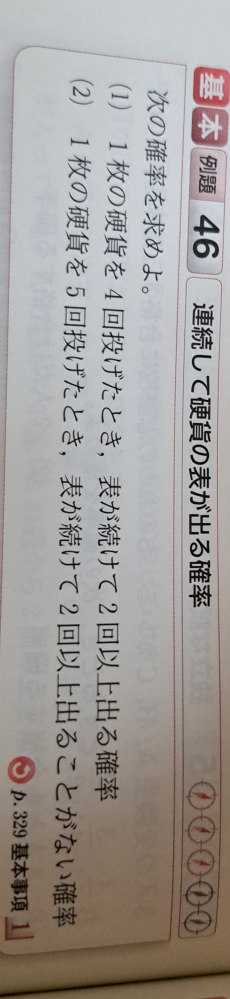 基本 例題 46 連続して硬貨の表が出る確率
次の確率を求めよ。
(1) 1枚の硬貨を4回投げたとき，表が続けて2回以上出る確率
(2) 1枚の硬貨を5回投げたとき，表が続けて2回以上出ることがない確率
p.329 基本事項 1